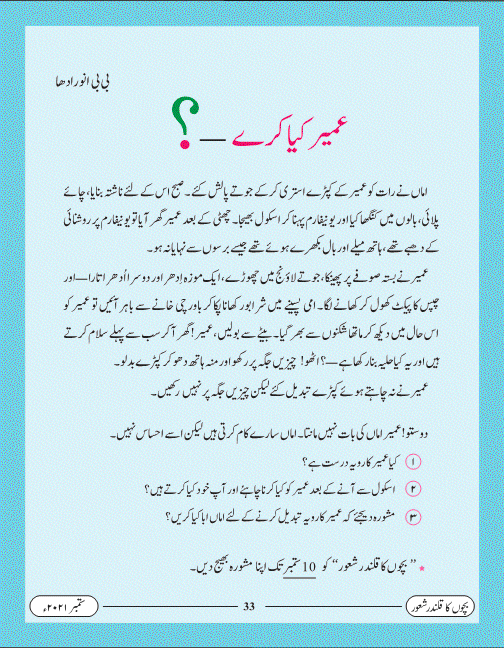 بی بی انورادھا
عمیر کیا کرے — ؟
اماں نے رات کو عمیر کے کپڑے استری کر کے جوتے پالش کئے۔ صبح اس کے لئے ناشتہ بنایا، چائے
پلائی، بالوں میں کنگھا کیا اور یونیفارم پہنا کر اسکول بھیجا۔ چھٹی کے بعد عمیر گھر آیا تو یونیفارم پر روشنائی
کے دھبے تھے، ہاتھ میلے اور بال بکھرے ہوئے تھے جیسے برسوں سے نہایا نہ ہو۔
عمیر نے بستہ صوفے پر پھینکا، جوتے لاؤنج میں چھوڑے، ایک موزہ اِدھر اور دوسرا اُدھر اتارا — اور
چپس کا پیکٹ کھول کر کھانے لگا۔ امی پسینے میں شرابور کھانا پکا کر باورچی خانے سے باہر آئیں تو عمیر کو
اس حال میں دیکھ کر ماتھا شکنوں سے بھر گیا۔ بیٹے سے بولیں، عمیر! گھر آ کر سب سے پہلے سلام کرتے
ہیں اور یہ کیا حلیہ بنا رکھا ہے —؟ اٹھو! چیزیں جگہ پر رکھو اور منہ ہاتھ دھو کر کپڑے بدلو۔
عمیر نے نہ چاہتے ہوئے کپڑے تبدیل کئے لیکن چیزیں جگہ پر نہیں رکھیں۔
دوستو! عمیر اماں کی بات نہیں مانتا۔ اماں سارے کام کرتی ہیں لیکن اسے احساس نہیں۔
۱ کیا عمیر کا رویہ درست ہے؟
۲ اسکول سے آنے کے بعد عمیر کو کیا کرنا چاہئے اور آپ خود کیا کرتے ہیں؟
۳ مشورہ دیجئے کہ عمیر کا رویہ تبدیل کرنے کے لئے اماں ابا کیا کریں؟
* ”بچوں کا قلندر شعور“ کو 10 ستمبر تک اپنا مشورہ بھیج دیں۔
بچوں کا قلندر شعور 33 ستمبر ۲۰۲۱ء